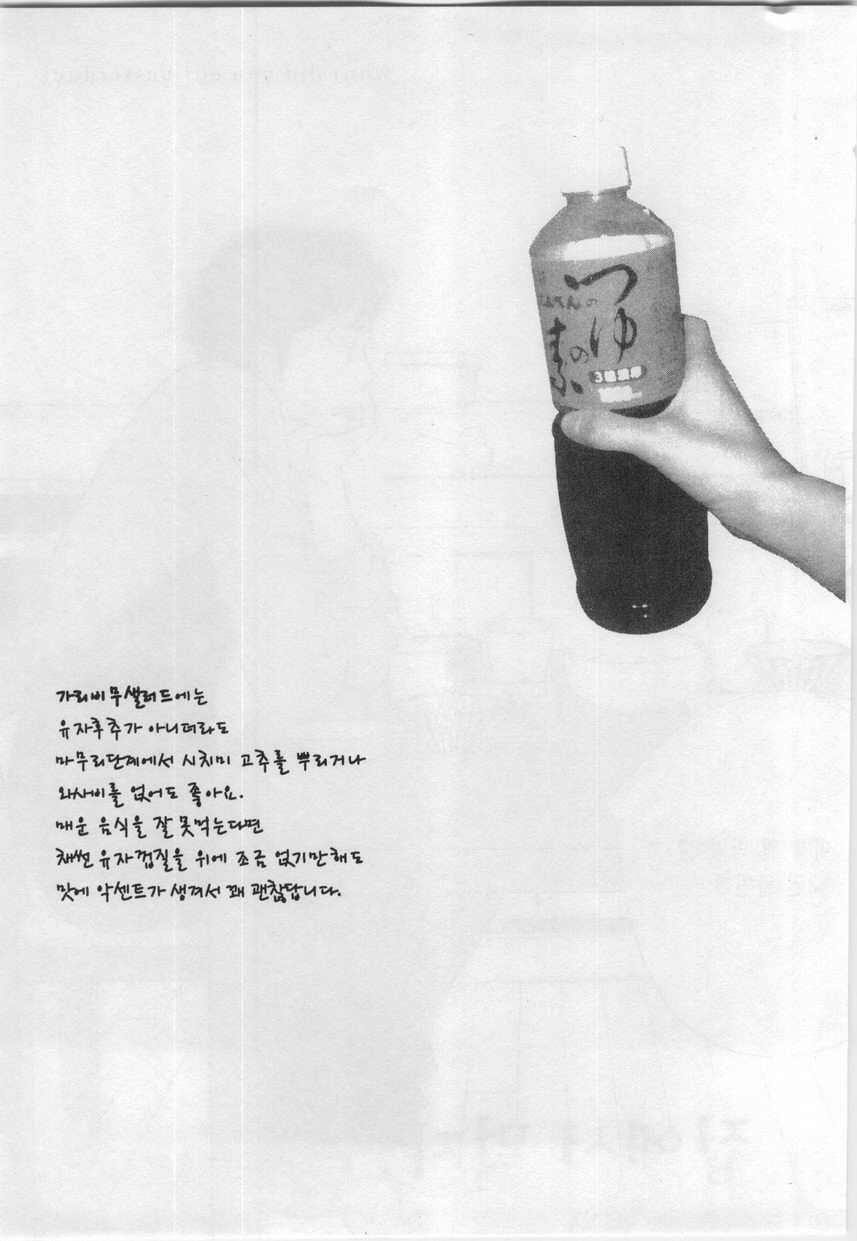 つゆ
の素
가리비무샐러드에는
유자후추가 아니더라도
마무리단계에서 시치미 고추를 뿌리거나
와사비를 얹어도 좋아요.
매운 음식을 잘 못먹는다면
채썬 유자껍질을 위에 조금 얹기만해도
맛에 악센트가 생겨서 꽤 괜찮답니다.